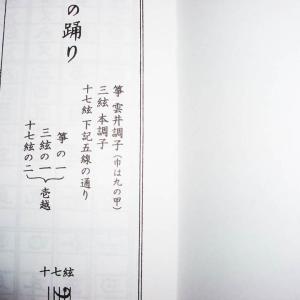 の踊り
箏 雲井調子（巾は九の甲）
三絃 本調子
十七絃 下記五線の通り
箏の一
三絃の一
十七絃の二
壱越
十七絃